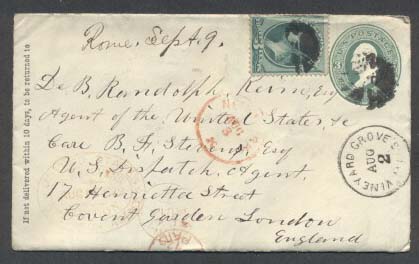 Rome, Sept. 9.
U.S. POSTAGE
De B. Randolph Keim, Esq
Agent of the United States, &c
Care B. F. Stevens, Esq
U. S. Dispatch Agent,
17 Henrietta Street
Covent Garden London
England
VINEYARD GROVE
AUG
2
PAID
If not delivered within 10 days, to be returned to